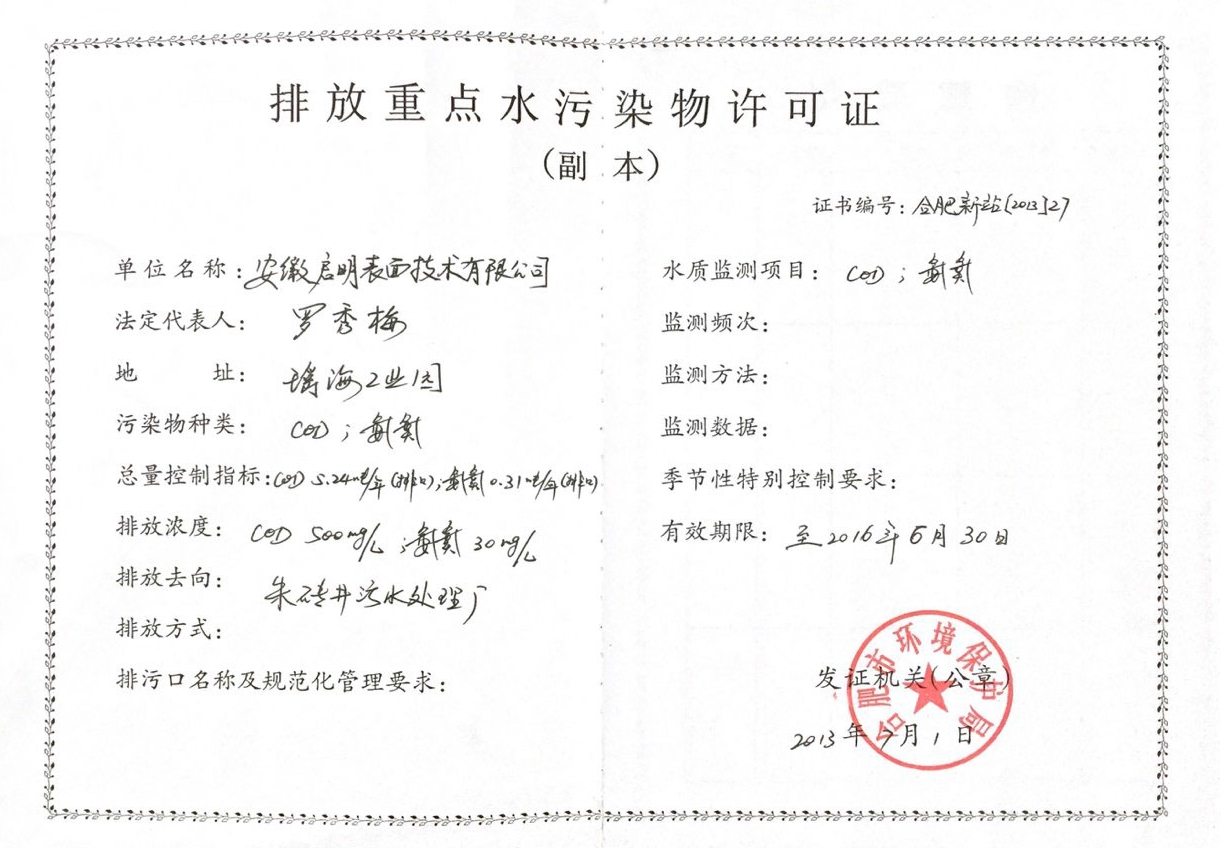 排放重点水污染物许可证
(副 本)
证书编号：合肥新站[2013]27
单位名称：安徽启明表面技术有限公司
法定代表人：罗秀梅
地 址：瑶海工业园
污染物种类：COD；氨氮
总量控制指标：COD 5.24吨/年(排口)；氨氮0.31吨/年(排口)
排放浓度：COD 500mg/L；氨氮30mg/L
排放去向：朱砖井污水处理厂
排放方式：
排污口名称及规范化管理要求：
水质监测项目：COD；氨氮
监测频次：
监测方法：
监测数据：
季节性特别控制要求：
有效期限：至2016年6月30日
合肥市环境保护局
发证机关(公章)
2013年7月1日